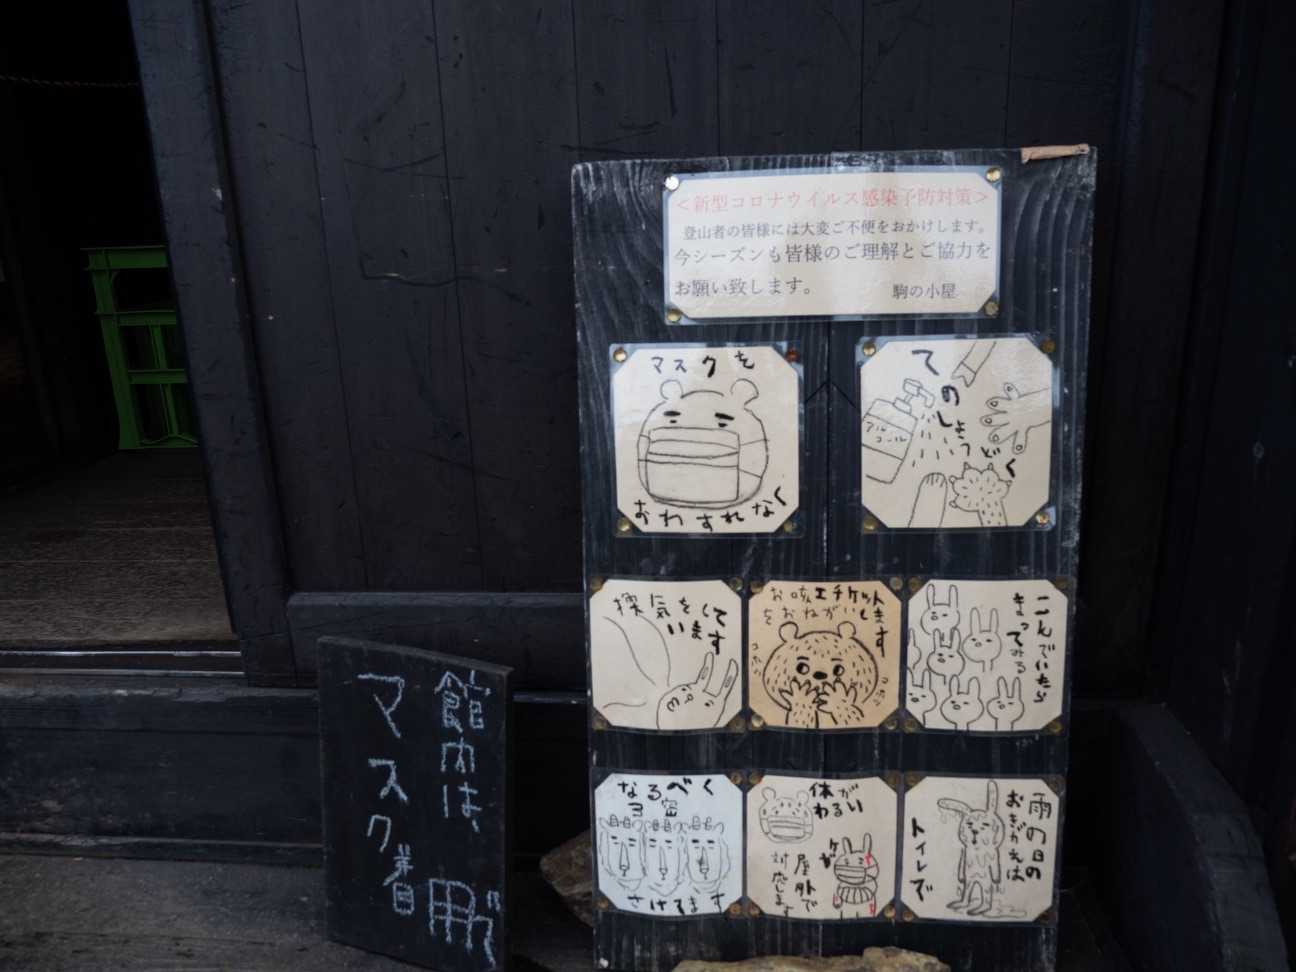 <新型コロナウイルス感染予防対策>
登山者の皆様には大変ご不便をおかけします。
今シーズンも皆様のご理解とご協力を
お願い致します。
駒の小屋
マスクを
おわすれなく
てのしょうどく
アル
コール
換気をして
います
お咳エチケット
をおねがいします
こんでいたら
まってみる
なるべく
3密
さけてます
体がわるい
ケガ
屋外で
対応します
雨の日の
おきがえは
トイレで
館内は、
マスク着用